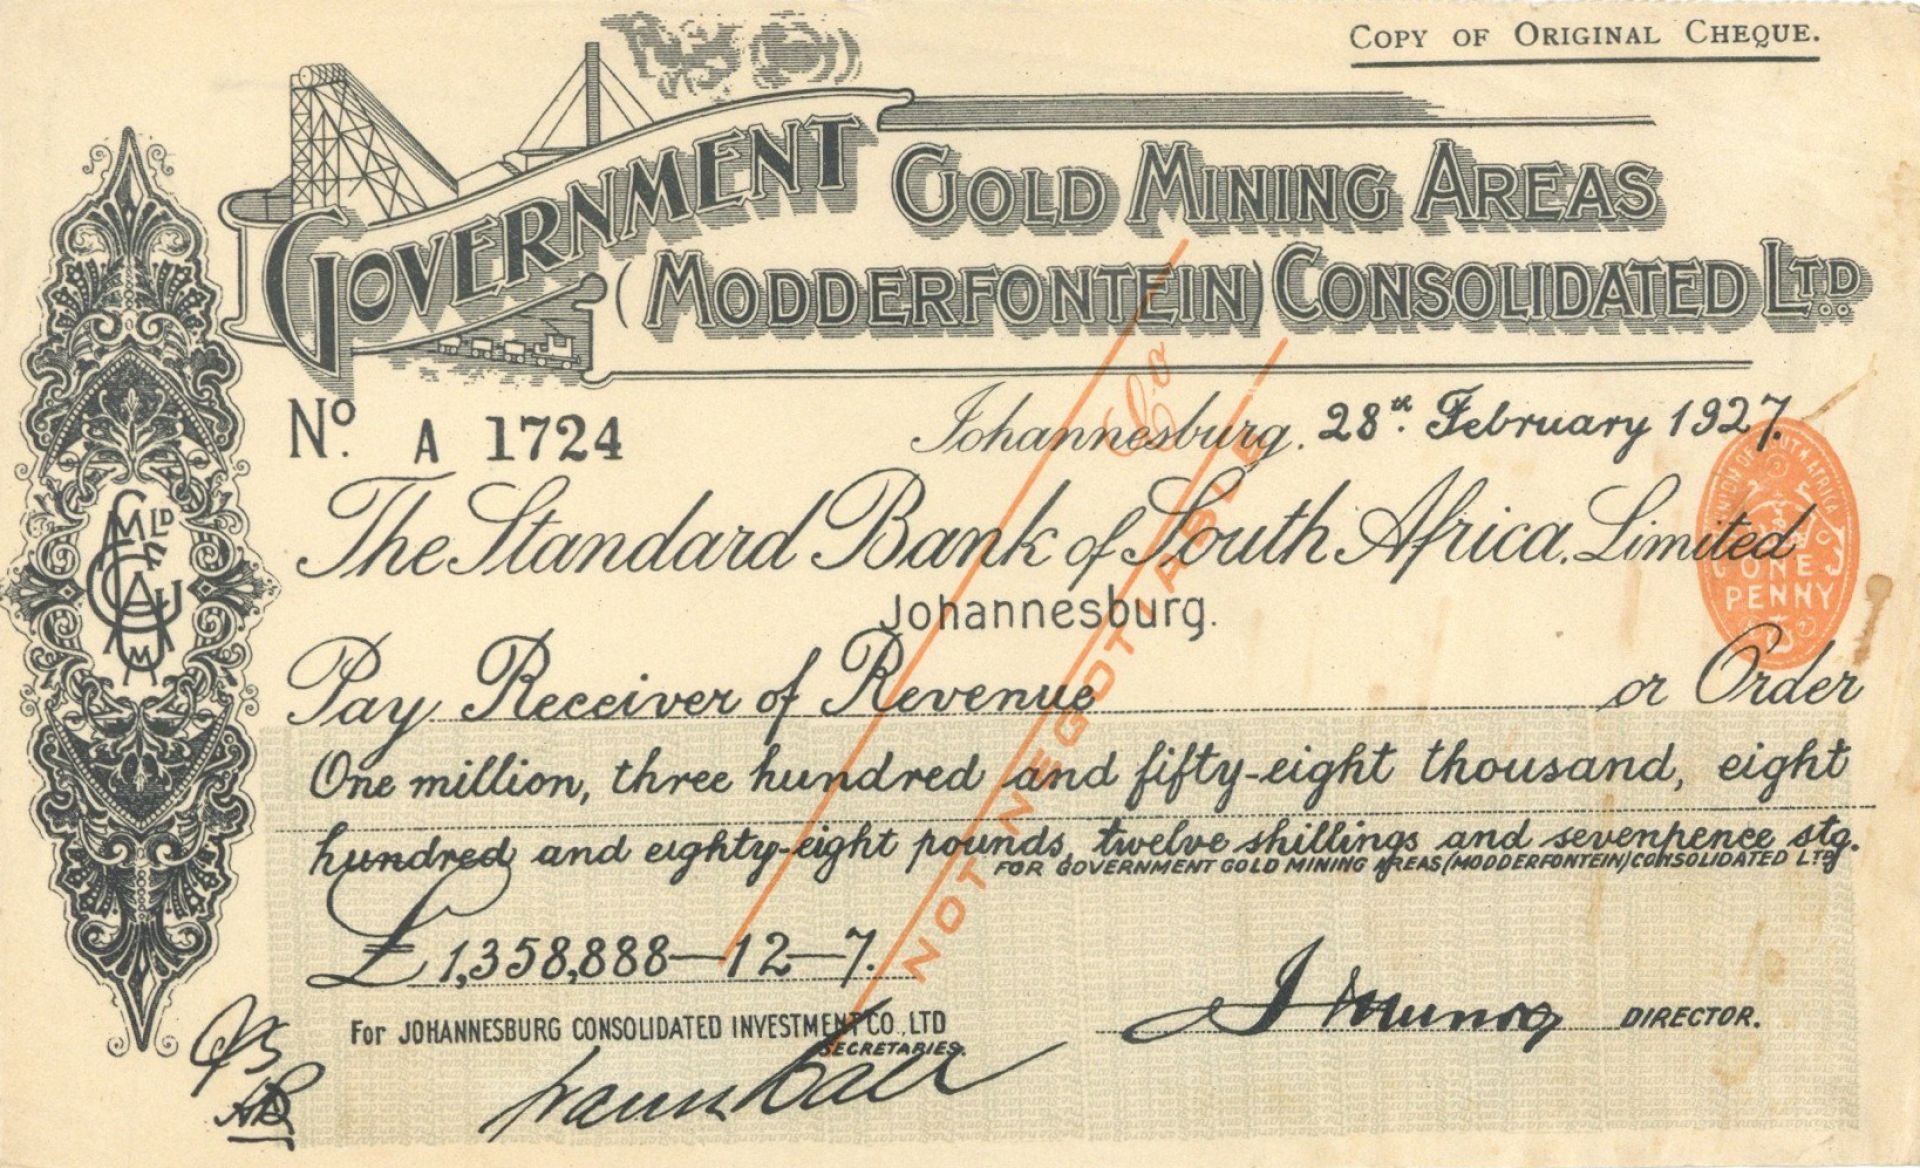 COPY OF ORIGINAL CHEQUE.
GOVERNMENT GOLD MINING AREAS
(MODDERFONTEIN) CONSOLIDATED LTD
No. A 1724
Johannesburg. 28th. February 1927.
The Standard Bank of South Africa, Limited
Johannesburg.
UNION OF SOUTH AFRICA
ONE
PENNY
& Co
NOT NEGOTIABLE
Pay Receiver of Revenue or Order
One million, three hundred and fifty-eight thousand, eight
hundred and eighty-eight pounds, twelve shillings and sevenpence stg.
FOR GOVERNMENT GOLD MINING AREAS (MODDERFONTEIN) CONSOLIDATED LTD
£ 1,358,888—12—7.
For JOHANNESBURG CONSOLIDATED INVESTMENT CO., LTD
SECRETARIES.
J Munro DIRECTOR.